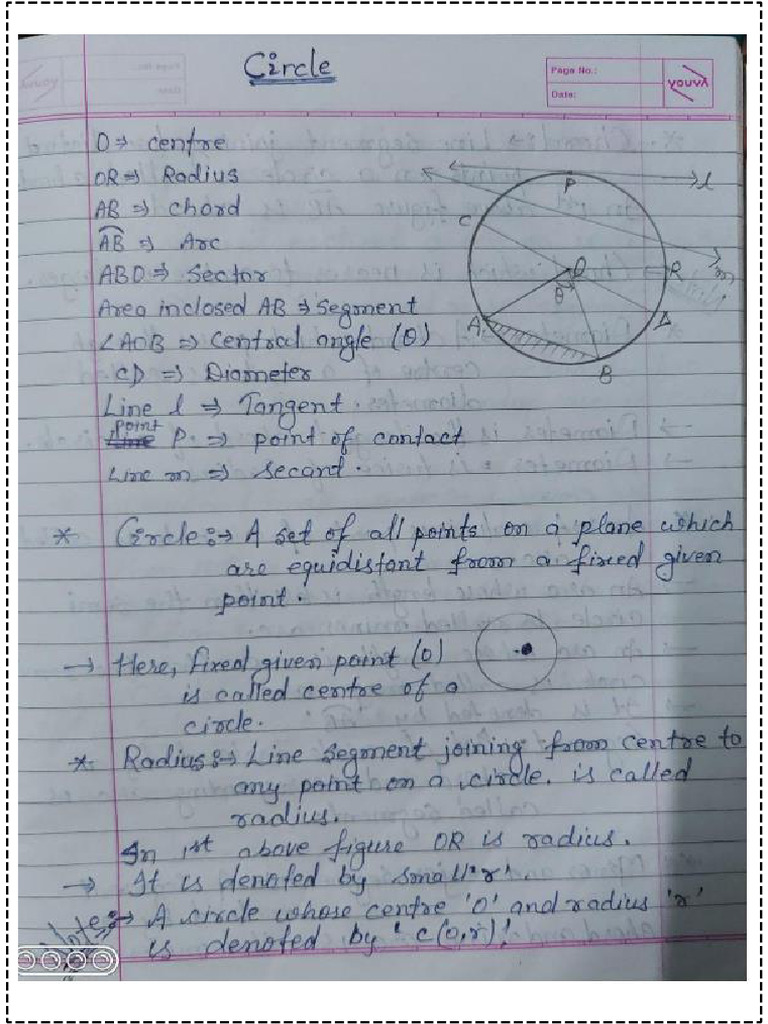 Circle
Page No.:
Date:
YOUVA
O ⇒ centre
OR ⇒ Radius
AB ⇒ chord
A͡B ⇒ Arc
ABO ⇒ Sector
Area inclosed AB ⇒ segment
∠AOB ⇒ Central angle (θ)
CD ⇒ Diameter
Line l ⇒ Tangent.
Point
Line P ⇒ point of contact
Line m ⇒ secant.
P
l
C
O
R
m
θ
A
D
B
* Circle:→ A set of all points on a plane which
are equidistant from a fixed given
point.
→ Here, fixed given point (O)
is called centre of a
circle.
* Radius:→ Line segment joining from centre to
any point on a circle. is called
radius.
In 1st above figure OR is radius.
→ It is denoted by small 'r'
Note:→ A circle whose centre 'O' and radius 'r'
is denoted by 'c(o,r)'.